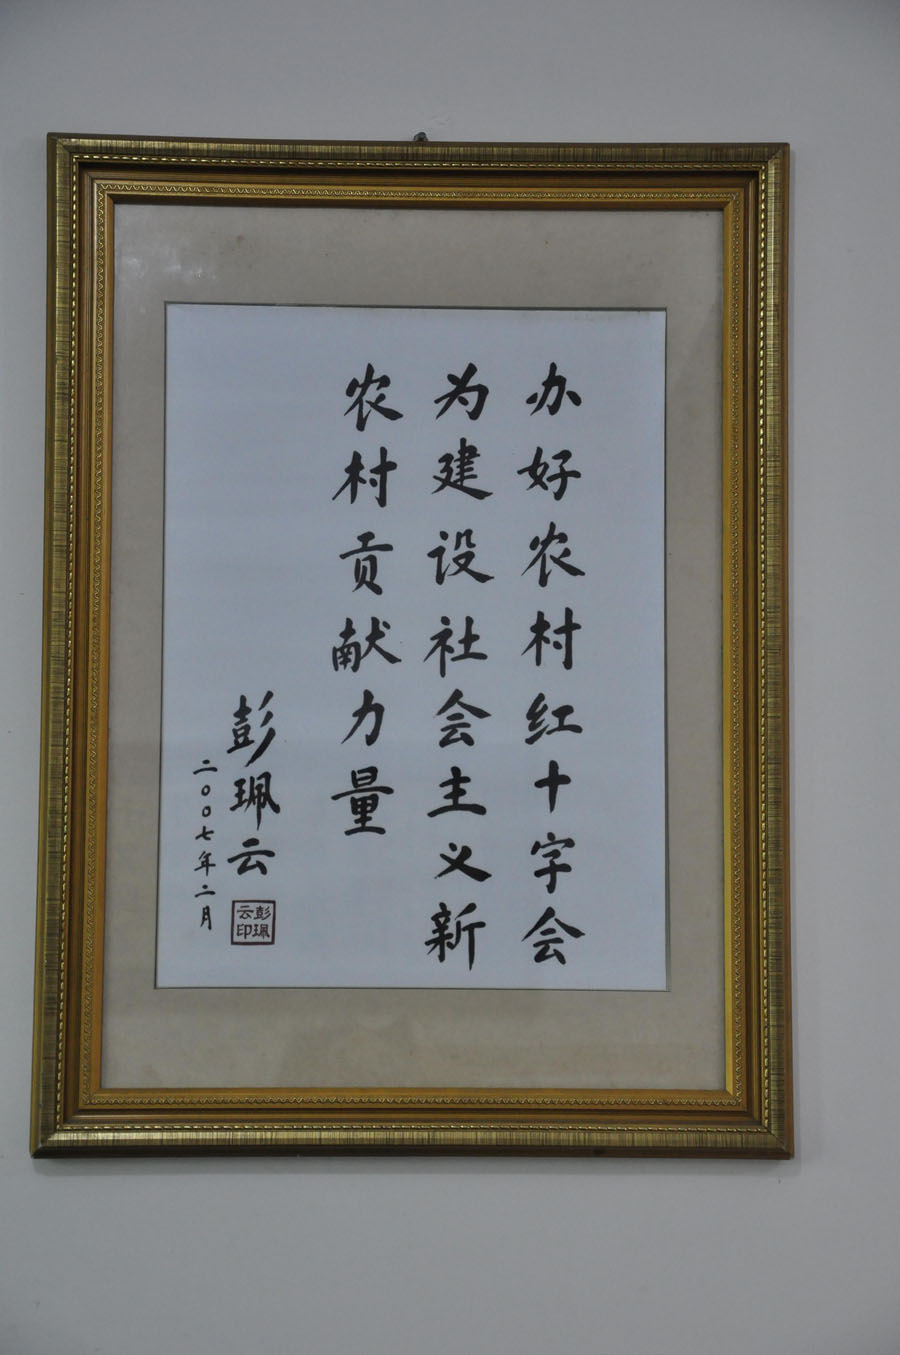 办好农村红十字会
为建设社会主义新
农村贡献力量
彭珮云
二〇〇七年二月
彭珮云印